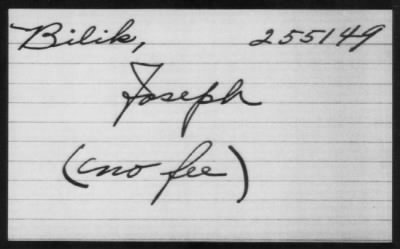 Bilik, 255149
Joseph
(no fee)